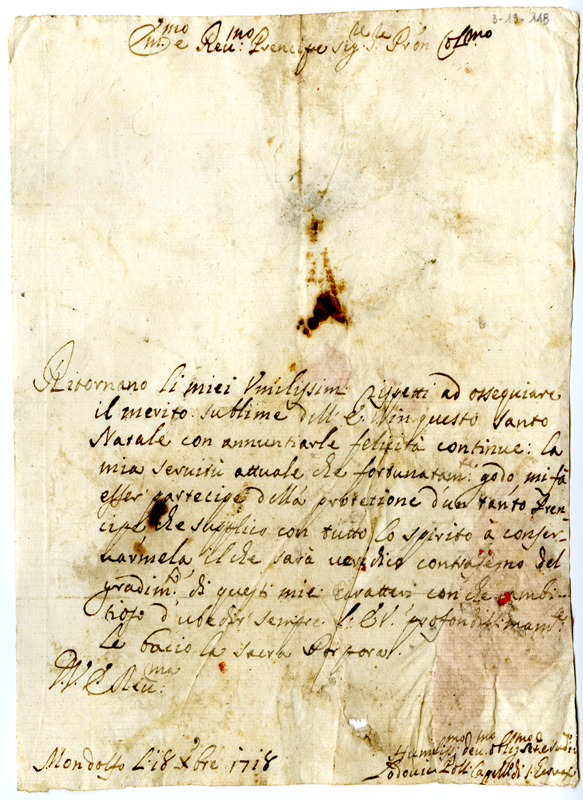 3-13-118
Em.mo e Reu.mo Prencipe Sig.re Pron Col.mo
Ritornano li miei Vmilissimi rispetti ad ossequiare
il merito sublime dell' E. V. in questo santo
Natale con annuntiarle felicità continue: la
mia seruitù attuale che fortunatam.te godo, mi fà
esser partecipe della protetione d'un tanto Pren-
cipe che supplico con tutto lo spirito à conser-
uarmela, il che sarà veridico contrasegno del
gradim.to di questi miei caratteri con che ambi-
tioso d'ubedir sempre l'E.V. profondissimam.te
le bacio la sacra Porpora.
D. V. E. Reu.ma
Mondolfo li 18 Xbre 1718
Humiliss.mo deu.mo oblig.mo Seruid.re
Lodouico Capell.